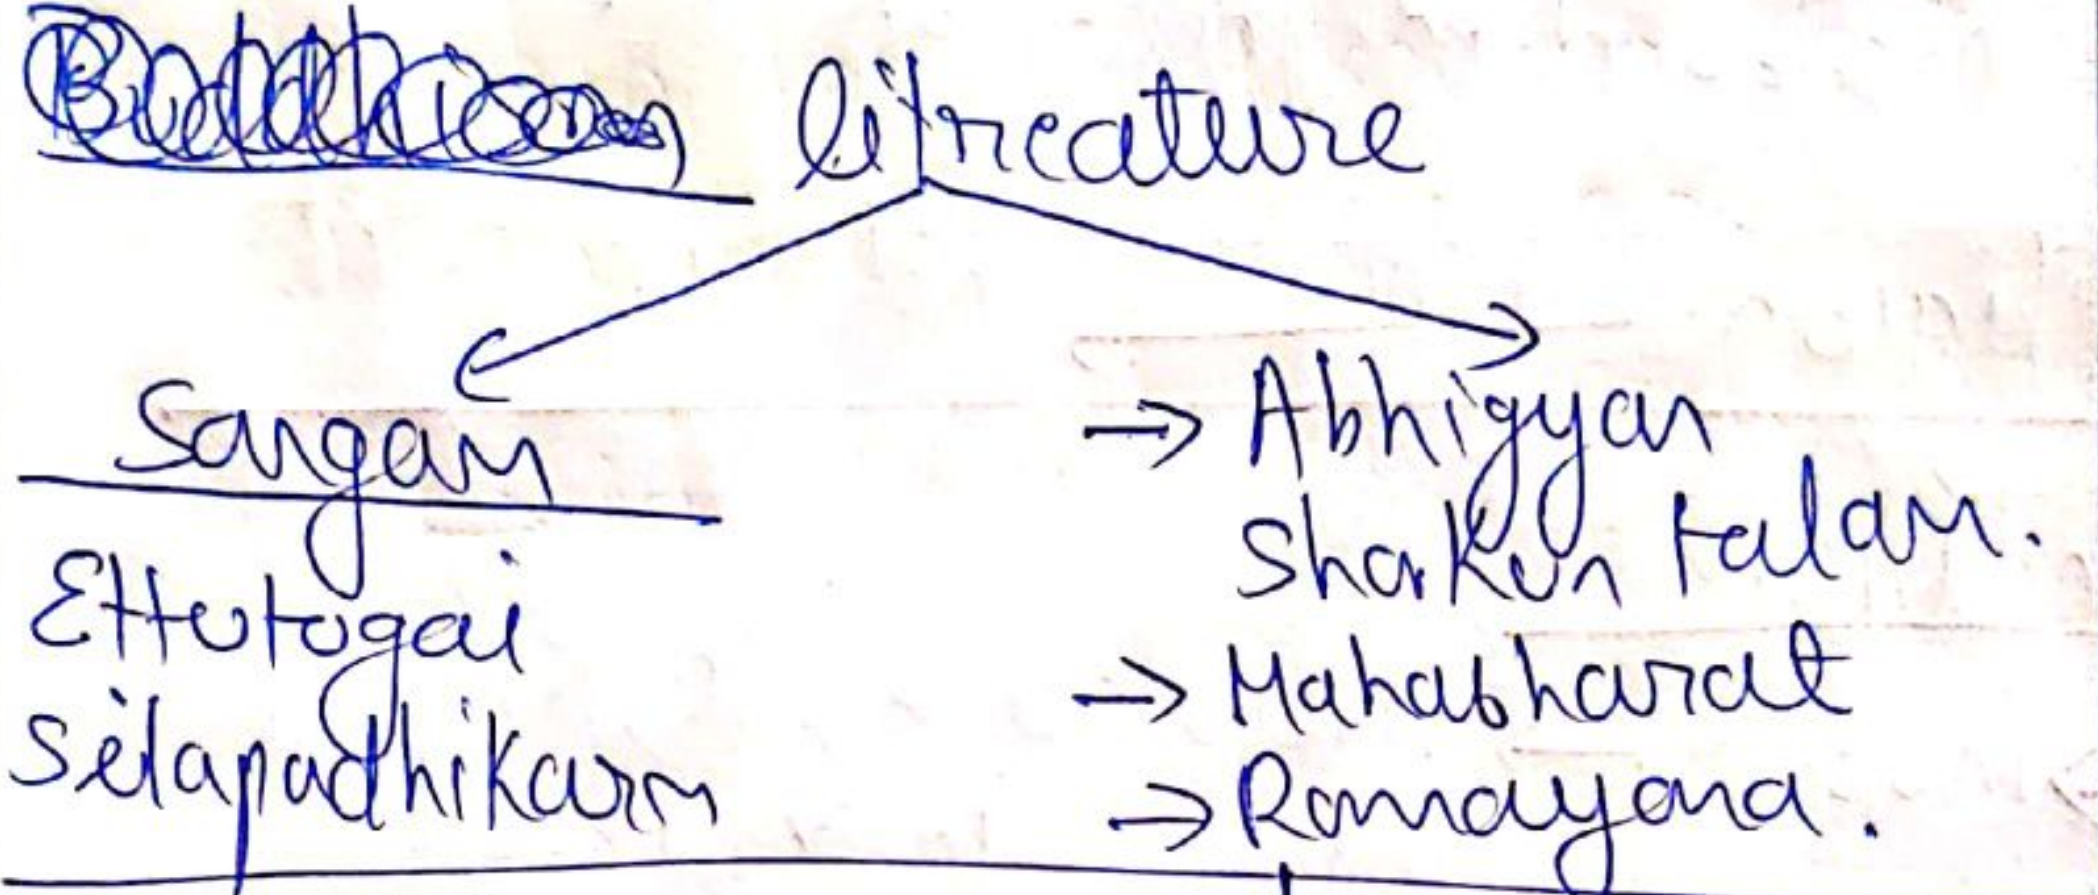 Buddhism litreature
Sangam
Ettutogai
Silapadhikarm
→ Abhigyan
Shakun talam.
→ Mahabharat
→ Ramayana.